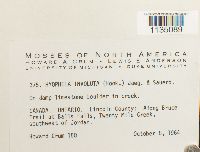 1135089
MOSSES OF NORTH AMERICA
HOWARD A. CRUM - LEWIS E. ANDERSON
UNIVERSITY OF MICHIGAN - DUKE UNIVERSITY
HYOPHILA INVOLUTA (Hook.) Jaeg. & Sauerb.
On damp limestone boulder in creek.
CANADA. ONTARIO. Lincoln County: Along Bruce
Trail at Balls Falls, Twenty Mile Creek,
southwest of Jordan.
Howard Crum October 4, 1964